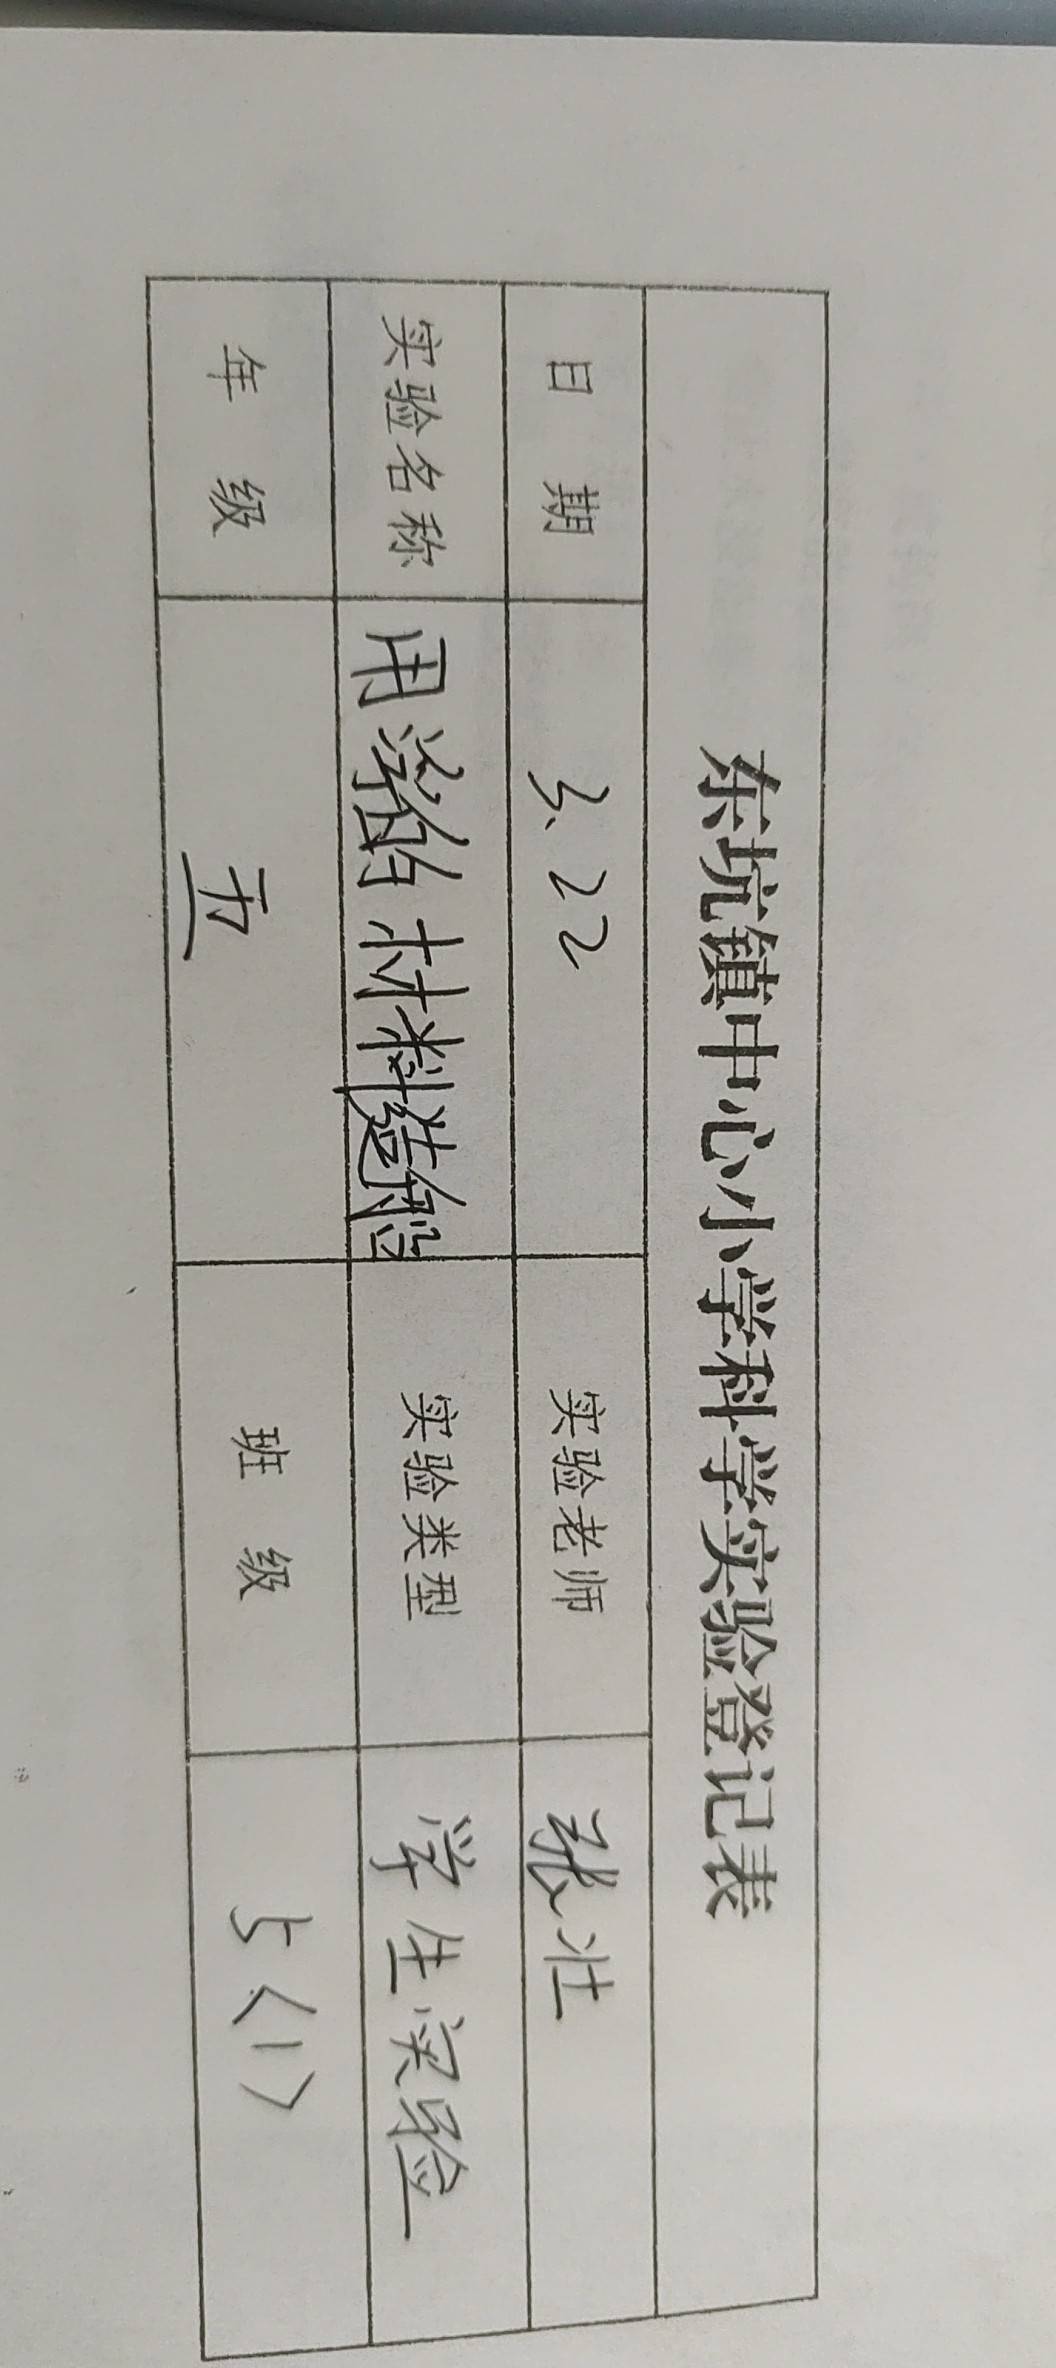 东坑镇中心小学科学实验登记表
日 期 3.22 实验老师 张壮
实验名称 用浮的材料造船 实验类型 学生实验
年 级 五 班 级 5（1）